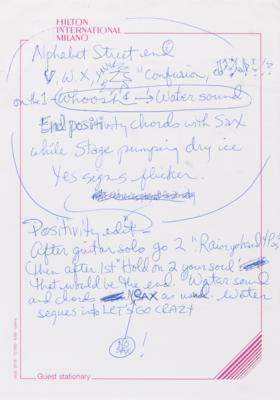 HILTON
INTERNATIONAL
MILANO
Alphabet Street end
V, W X, "Confusion,
on the 1 - Whoosh! → Water sound
End positivity chords with Sax
while Stage pumping dry ice
Yes signs flicker.
Positivity edit -
After guitar solo go 2 "
then after 1st "Hold on 2 your soul"
that would be the end. Water sound
and chords SAX as usual. Water
segues into LET'S GO CRAZY
NO
SAX!
Guest stationary